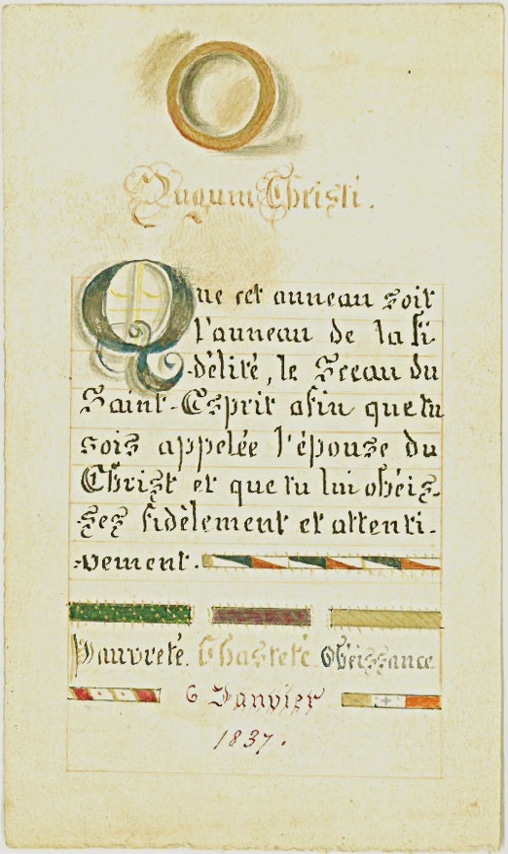 Jugum Christi.
Que cet anneau soit
l'anneau de la fi-
-délité, le Sceau du
Saint-Esprit afin que tu
sois appelée l'épouse du
Christ et que tu lui obéis-
-ses fidèlement et attenti-
-vement.
Pauvreté. Chasteté. Obéissance
6 Janvier
1837.